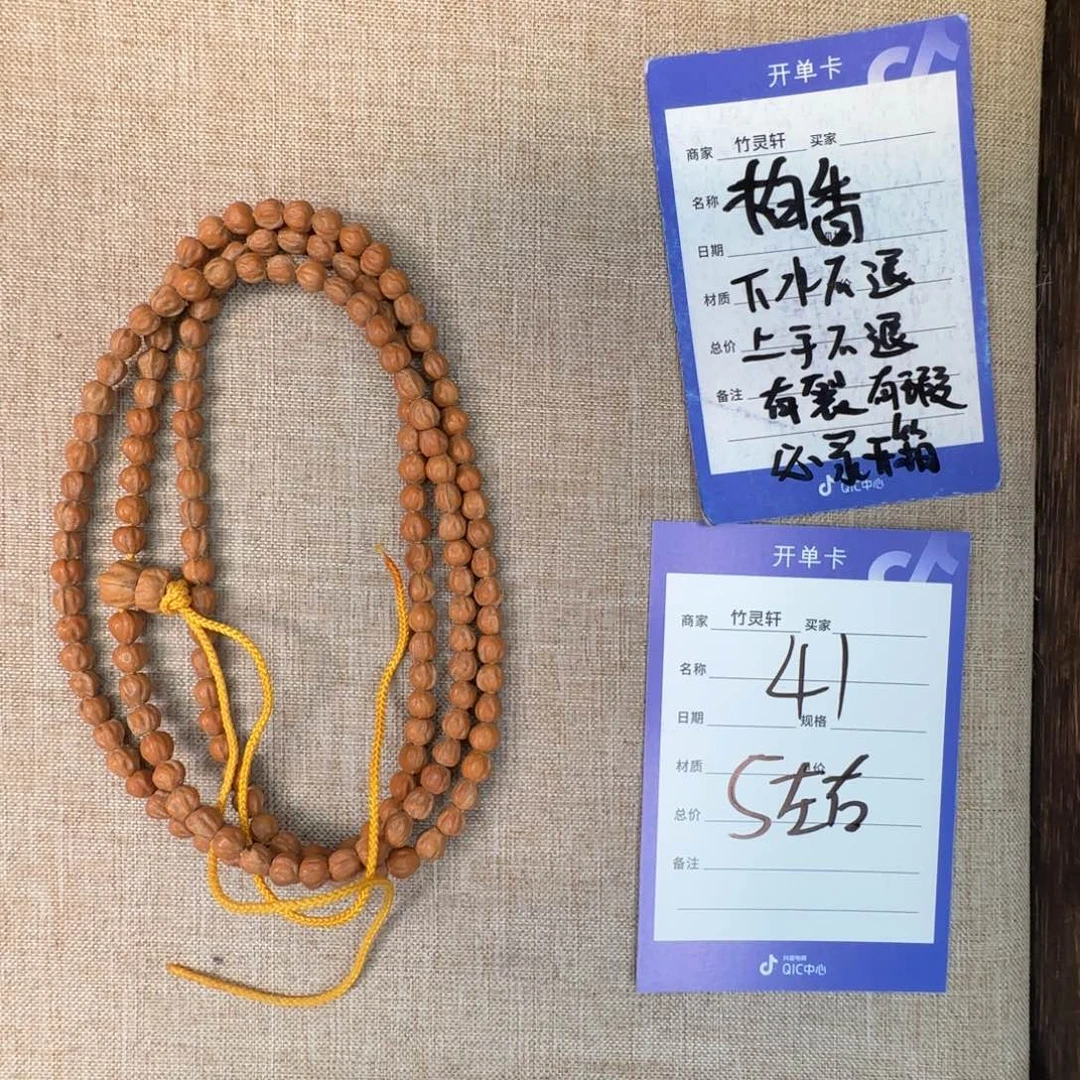 开单卡
商家 竹灵轩 买家
名称 柏香
日期
材质 下水不退
总价 上手不退
备注 有裂有瑕
必录开箱
QIC中心
开单卡
商家 竹灵轩 买家
名称 41
日期 规格
材质
总价 5左右
备注
抖音电商
QIC中心